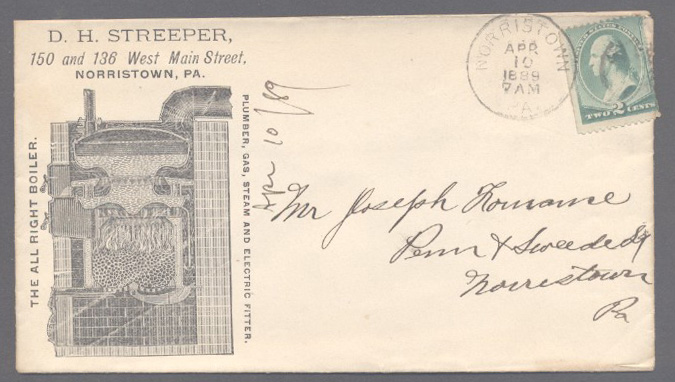 D. H. STREEPER,
150 and 136 West Main Street,
NORRISTOWN, PA.
THE ALL RIGHT BOILER.
PLUMBER, GAS, STEAM AND ELECTRIC FITTER.
Apr 10/89
NORRISTOWN
APR
10
1889
7AM
PA.
UNITED STATES POSTAGE
TWO 2 CENTS
Mr Joseph Romance
Penn & Sweede St
Norristown
Pa